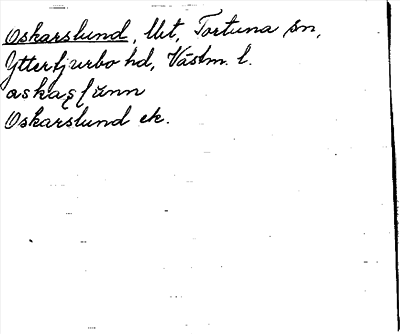 Oskarslund, Ut, Tortuna sn,
Ytterfjurbo hd, Västm. l.
Oskarslund ek.